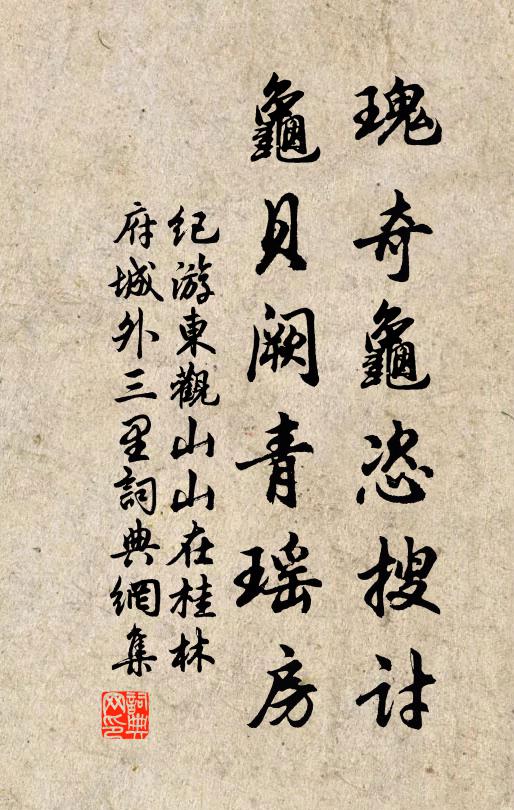 瑰奇龜恣搜討
龜貝闕青瑤房
紀游東觀山山在桂林
府城外三里詞典網集
詞典网印